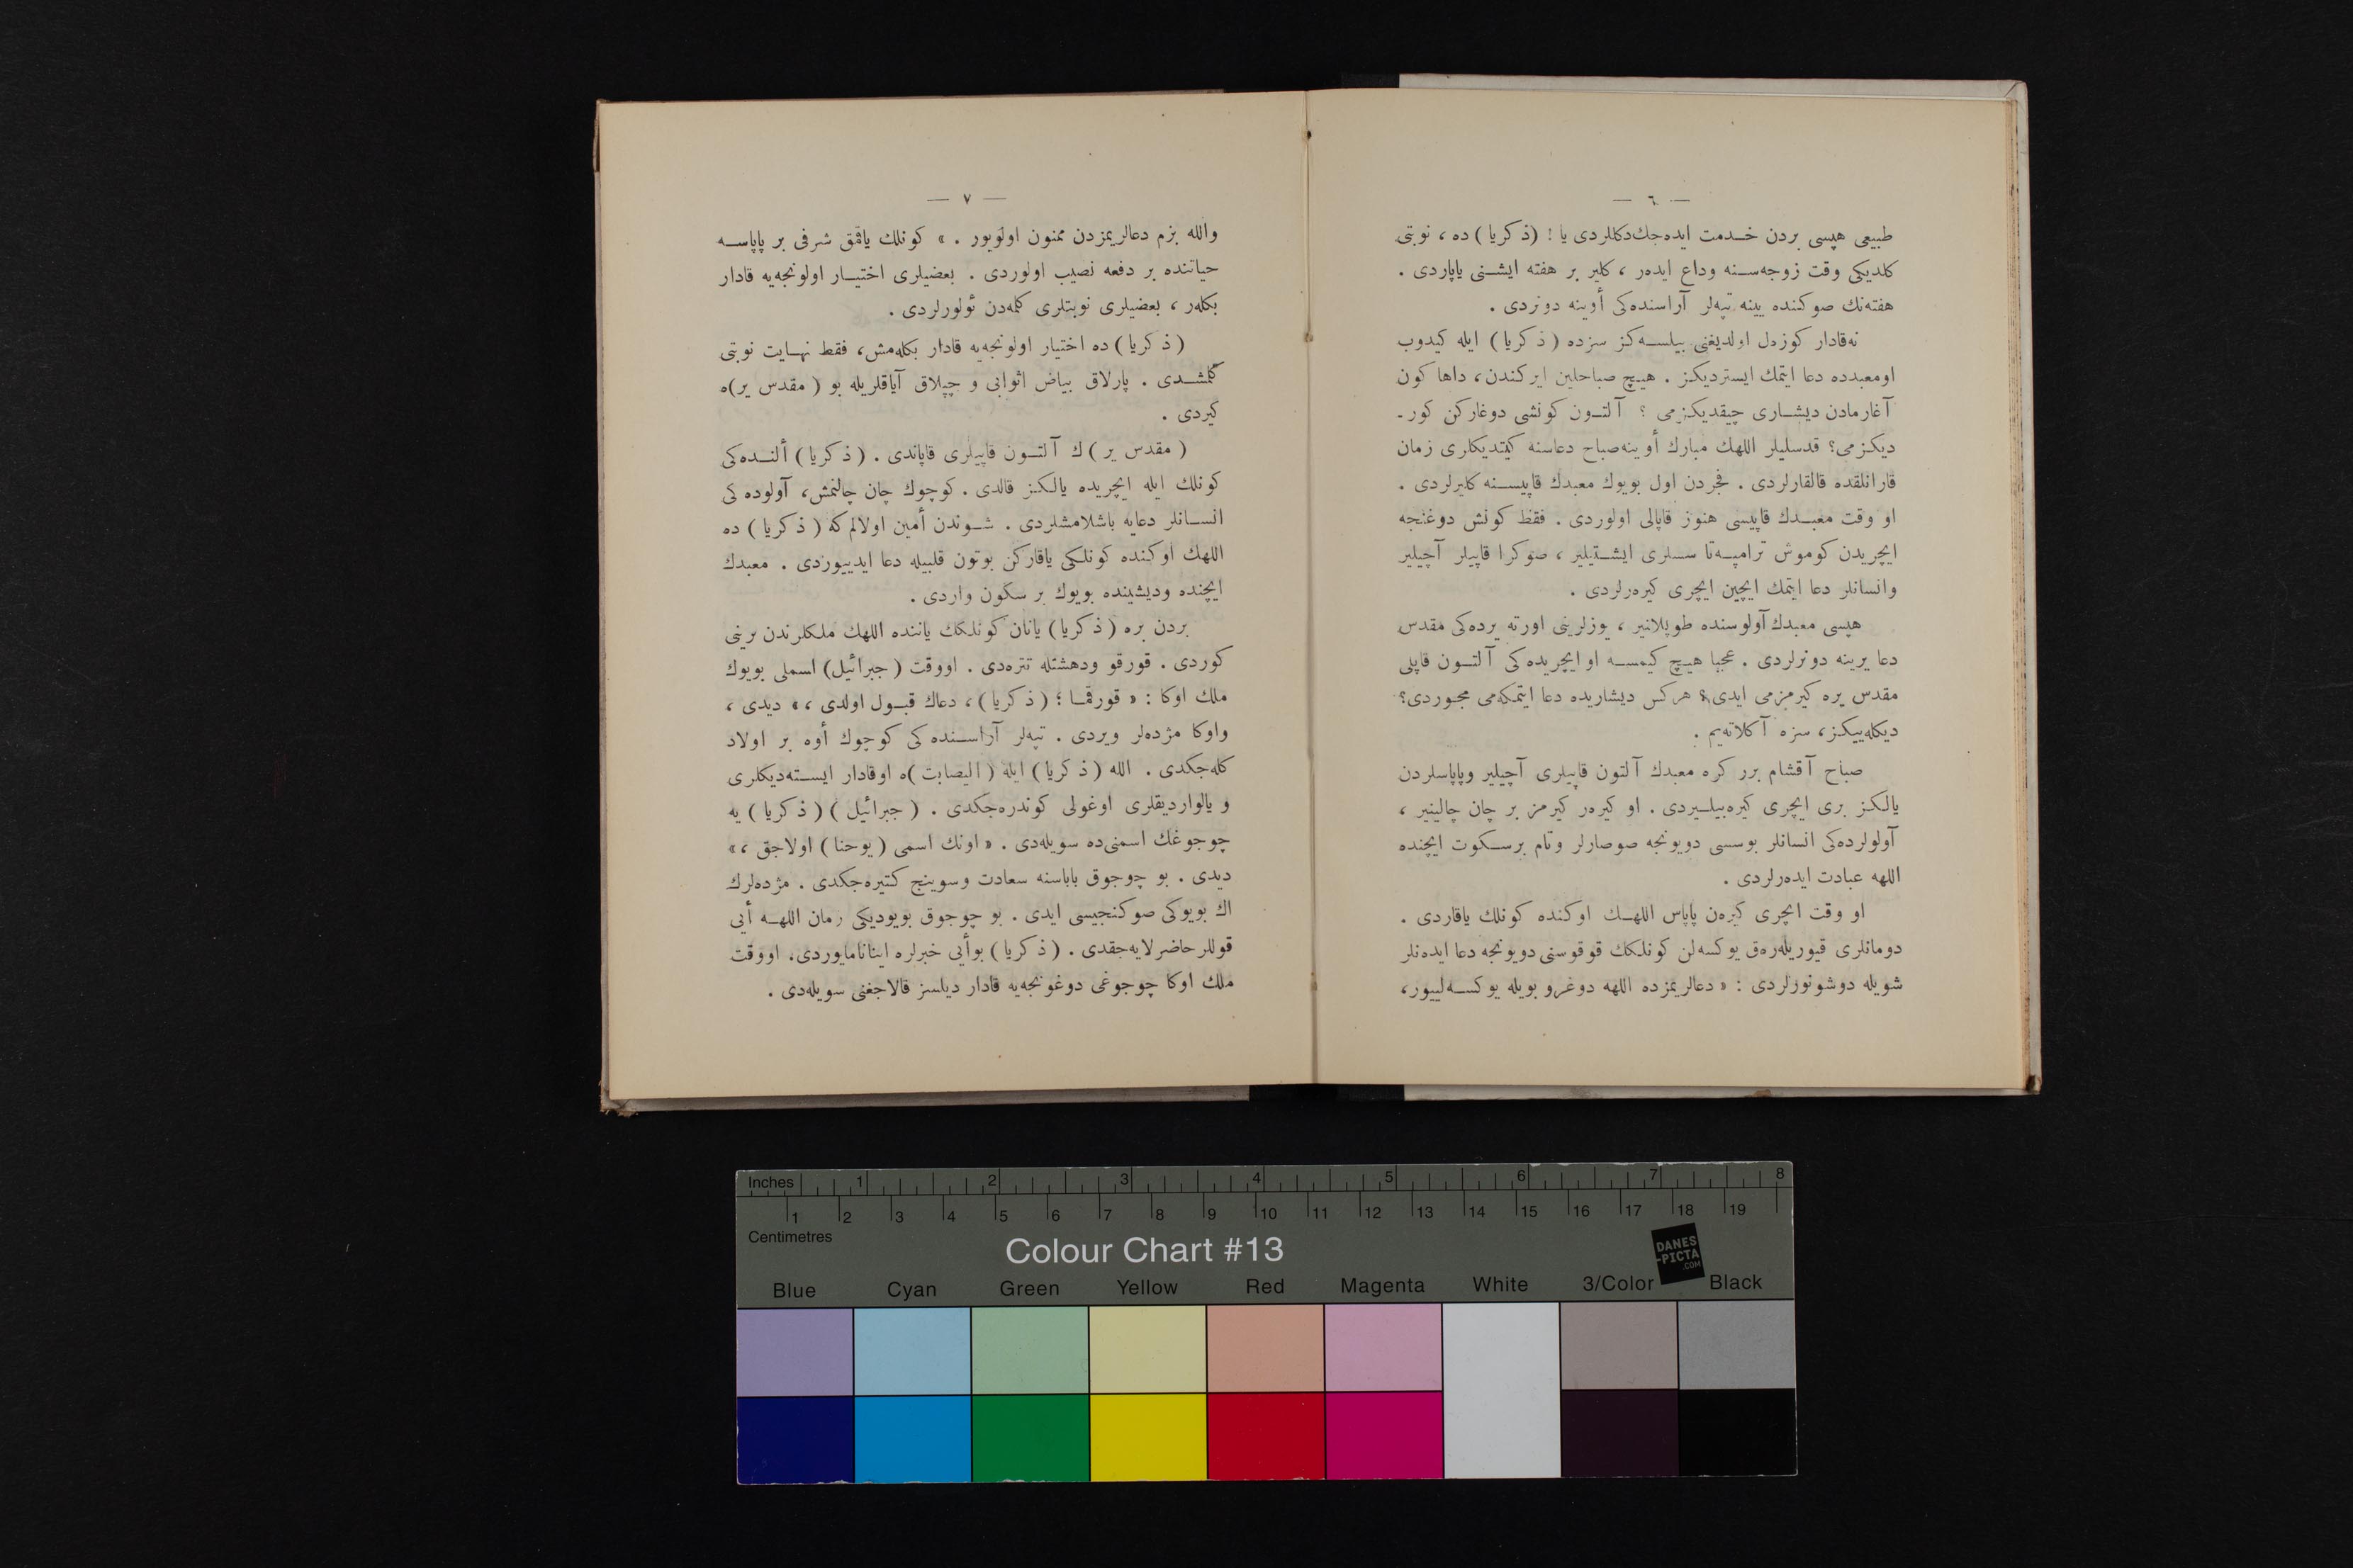 — ٦ —
طبیعی هپسی بردن خـدمت ایده‌جك‌دكللردی یا ! (ذكریا) ده ، نوبتی
كلدیكی وقت زوجه‌سـنه وداع ایده‌ر ، كلیر بر هفته ایشـنی یاپاردی .
هفته‌نك صوكنده یینه تپه‌لر آراسنده‌كی أوینه دونردی .
نه‌قادار كوزه‌ل اولدیغنی بیلسـه‌كز سزده (ذكریا) ایله كیدوب
اومعبدده دعا ایتمك ایستردیكز . هیـچ صباحلین ایركندن، داها كون
آغارمادن دیشـاری چیقدیكزمی ؟ آلتـون كونشی دوغاركن كور-
دیكزمی؟ قدسلیلر اللهك مبارك أوینه‌صباح دعاسنه كیتدیكلری زمان
قارانلقده قالقارلردی . فجردن اول بویوك معبدك قاپیسـنه كلیرلردی .
او وقت معبـدك قاپیسی هنوز قاپالی اولوردی . فقط كونش دوغنجه
ایچریدن كوموش ترامپـه‌تا سسلری ایشـتیلیر ، صوكرا قاپیلر آچیلیر
وانسانلر دعا ایتمك ایچین ایچری كیره‌رلردی .
هپسی معبدك آولوسنده طوپلانیر ، یوزلرینی اورته یرده‌كی مقدس
دعا یرینه دونرلردی . عجبا هیـچ كیمسـه او ایچریده‌كی آلتـون قاپلی
مقدس یره كیرمزمی ایدی؟ هركس دیشاریده دعا ایتمكه‌می مجبـوردی؟
دیكله‌ییكز، سزه آكلاته‌یم .
صباح آقشام برر كره معبدك آلتون قاپیلری آچیلیر وپاپاسلردن
یالكـز بری ایچری كیره‌بیلـیردی . او كیره‌ر كیرمز بر چان چالینیر ،
آولولرده‌كی انسانلر بوسسی دویونجه صوصارلر وتام برسـكوت ایچنده
اللهه عبادت ایده‌رلردی .
او وقت ایچری كیره‌ن پاپاس اللهـك اوكنده كونلك یاقاردی .
دومانلری قیوریله‌ره‌ق یوكسه‌لن كونلكك قوقوسنی دویونجه دعا ایده‌نلر
شویله دوشونورلردی : « دعالریمزده اللهه دوغرو بویله یوكسـه‌لییور،
— ٧ —
والله بزم دعالریمزدن ممنون اولویور . » كونلك یاقمق شرفی بر پاپاسـه
حیاتنده بر دفعه نصیب اولوردی . بعضیلری اختیـار اولونجه‌یه قادار
بكلەر ، بعضیلری نوبتلری كلمه‌دن ئولورلردی .
(ذكریا) ده اختیار اولونجه‌یه قادار بكله‌مش، فقط نهـایت نوبتی
كلمشـدی . پارلاق بیاض اثوابی و چیپلاق آیاقلریله بو (مقدس یر)ه
كیردی .
(مقدس یر) ك آلتـون قاپیلری قاپاندی . (ذكریا) ألنـده‌كی
كونلك ایله ایچریده یالكـز قالدی . كوچوك چان چالنمش، آولوده كی
انسـانلر دعایه باشلامشلردی . شـوندن أمین اولالم كه (ذكریا) ده
اللهك اوكنده كونلكی یاقاركن بوتون قلبیله دعا ایدییوردی . معبدك
ایچنده ودیشینده بویوك بر سكون واردی .
بردن بره (ذكریا) یانان كونلكك یاننده اللهك ملكلرندن برینی
كوردی . قورقو ودهشتله تتره‌دی . اووقت (جبرائیل) اسملی بویوك
ملك اوكا : « قورقمـا ؛ (ذكریا) ، دعاك قبـول اولدی ، » دیدی ،
واوكا مژده‌لر ویردی . تپه‌لر آراسـنده كی كوچوك أوه بر اولاد
كله‌جكدی . الله (ذكریا) ایله (الیصابت)ه اوقادار ایسـته‌دیكلری
و یالواردیقلری اوغولی كوندره‌جكدی . (جبرائیل) (ذكریا) یه
چوجوغك اسمنی‌ده سویله‌دی . « اونك اسمی (یوحنا) اولاجق ، »
دیدی . بو چوجوق باباسنه سعادت وسوینج كتیره‌جكدی . مژده‌لرك
اك بویوكی صوكنجیسی ایدی . بو چوجوق بویودیكی زمان اللهـه أیی
قوللر حاضرلایه‌جقدی . (ذكریا) بوأیی خبرلره اینانامایوردی. اووقت
ملك اوكا چوجوغی دوغونجه‌یه قادار دیلسز قالاجغنی سویله‌دی .
Inches 1 2 3 4 5 6 7 8
1 2 3 4 5 6 7 8 9 10 11 12 13 14 15 16 17 18 19
Centimetres
Colour Chart #13
DANES
-PICTA
.COM
Blue Cyan Green Yellow Red Magenta White 3/Color Black